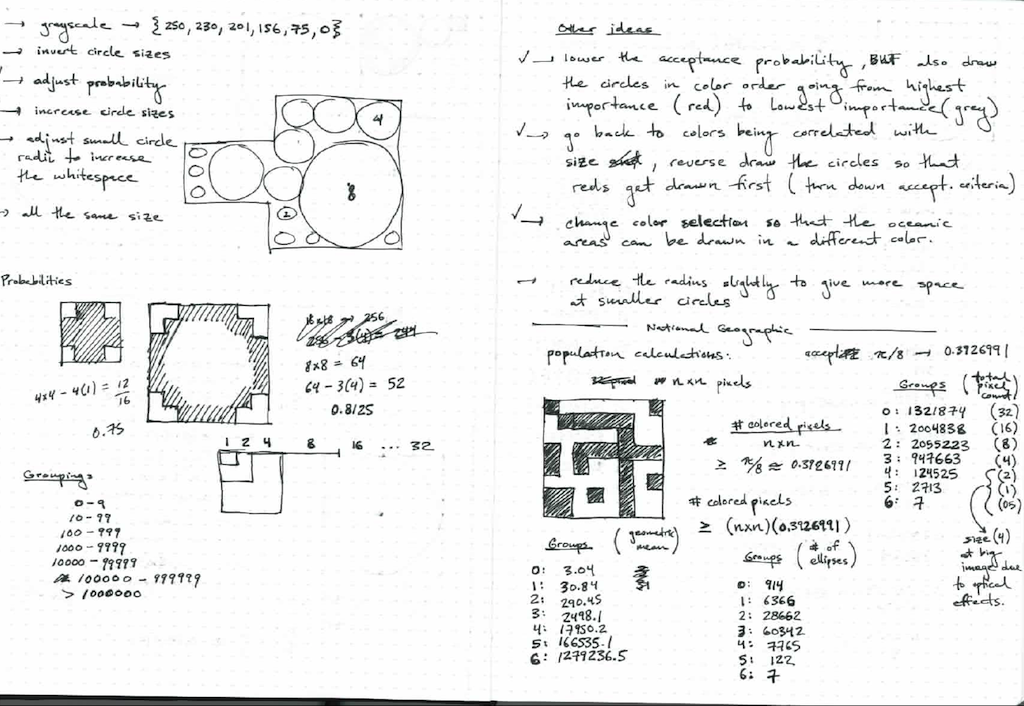 → grayscale → {250, 230, 201, 156, 75, 0}
→ invert circle sizes
→ adjust probability
→ increase circle sizes
→ adjust small circle
radii to increase
the whitespace
→ all the same size
4
8
2
Probabilities
4x4 - 4(1) = 12/16
0.75
16x16 → 256
256 - 3(4) = 244
8x8 = 64
64 - 3(4) = 52
0.8125
1 2 4 8 16 ... 32
Groupings
0-9
10-99
100-999
1000-9999
10000-99999
100000-999999
> 1000000
Other ideas
✓→ lower the acceptance probability, BUT also draw
the circles in color order going from highest
importance (red) to lowest importance (grey)
✓→ go back to colors being correlated with
size, reverse draw the circles so that
reds get drawn first (turn down accept. criteria)
✓→ change color selection so that the oceanic
areas can be drawn in a different color.
→ reduce the radius slightly to give more space
at smaller circles
National Geographic
population calculations:
accept π/8 → 0.3926991
n×n pixels
# colored pixels
n×n
≥ π/8 ≈ 0.3926991
# colored pixels
≥ (n×n)(0.3926991)
Groups (total pixel count)
0: 1321874 (32)
1: 2004838 (16)
2: 2055223 (8)
3: 947663 (4)
4: 124525 (2)
5: 2713 (1)
6: 7 (05)
size (4)
at big
image due
to optical
effects.
Groups (geometric mean)
0: 3.04
1: 30.84
2: 290.45
3: 2498.1
4: 17950.2
5: 166535.1
6: 1279236.5
Groups (# of ellipses)
0: 914
1: 6366
2: 28662
3: 60342
4: 7765
5: 122
6: 7